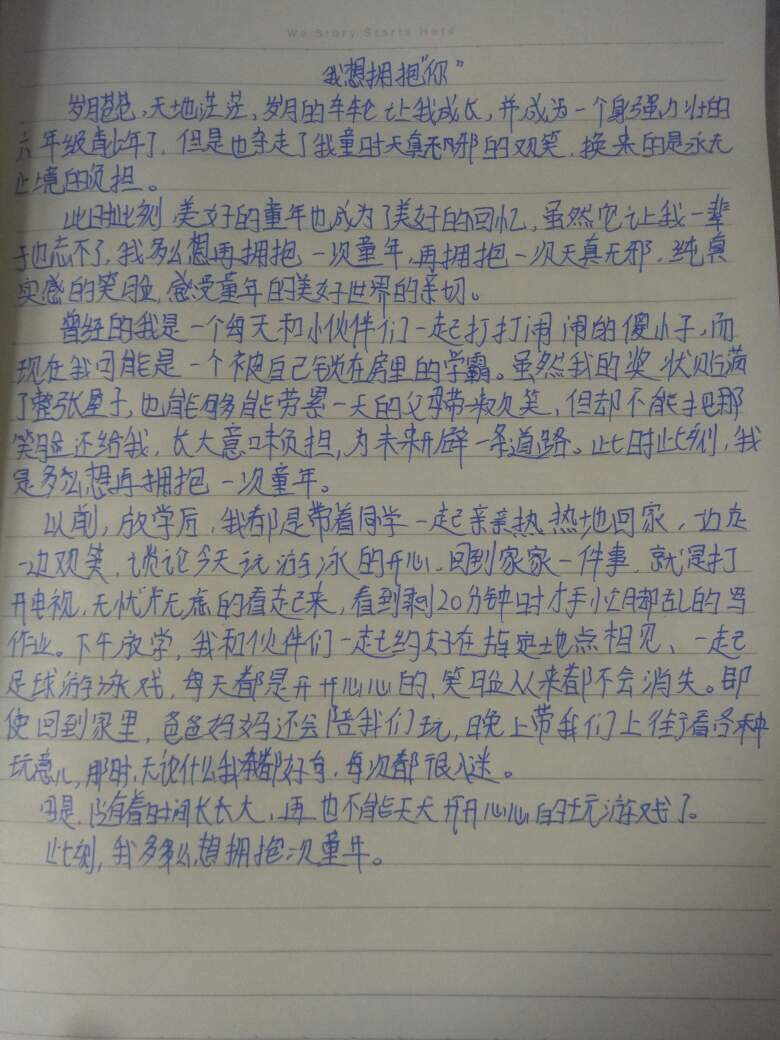 We Story Starts Here
我想拥抱“你”
岁月苍苍,天地茫茫,岁月的车轮让我成长,并成为一个身强力壮的
六年级青少年了,但是也夺走了我童时天真无邪的欢笑,换来的是永无
止境的负担。
此时此刻,美好的童年也成为了美好的回忆,虽然它让我一辈
子也忘不了,我多么想再拥抱一次童年,再拥抱一次天真无邪,纯真
实感的笑脸,感受童年的美好世界的亲切。
曾经的我是一个每天和小伙伴们一起打打闹闹的傻小子,而
现在我可能是一个被自己锁在房里的学霸。虽然我的奖状贴满
了整张屋子,也能够能劳累一天的父母带来欢笑,但却不能把那
笑脸还给我,长大意味负担,为未来开辟一条道路。此时此刻,我
是多么想再拥抱一次童年。
以前,放学后,我都是带着同学一起亲亲热热地回家,边走
边欢笑,谈论今天玩游泳的开心,回到家家一件事,就是打
开电视,无忧无虑的看起来,看到剩20分钟时才手忙脚乱的写
作业。下午放学,我和伙伴们一起约好在指定地点相见,一起
足球游泳戏,每天都是开开心心的,笑脸从来都不会消失。即
使回到家里,爸爸妈妈还会陪我们玩,晚上带我们上街看各种
玩意儿,那时,无论什么我都好奇,每次都很入迷。
可是,随着时间长长大,再也不能天天开开心心的玩游戏了。
此刻,我多么想拥抱次童年。